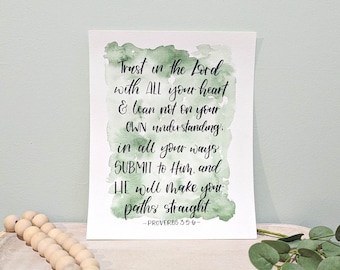 Trust in the Lord
with ALL your heart
& lean not on your
OWN understanding,
in all your ways
SUBMIT to Him, and
HE will make your
paths straight
-PROVERBS 3:5-6-